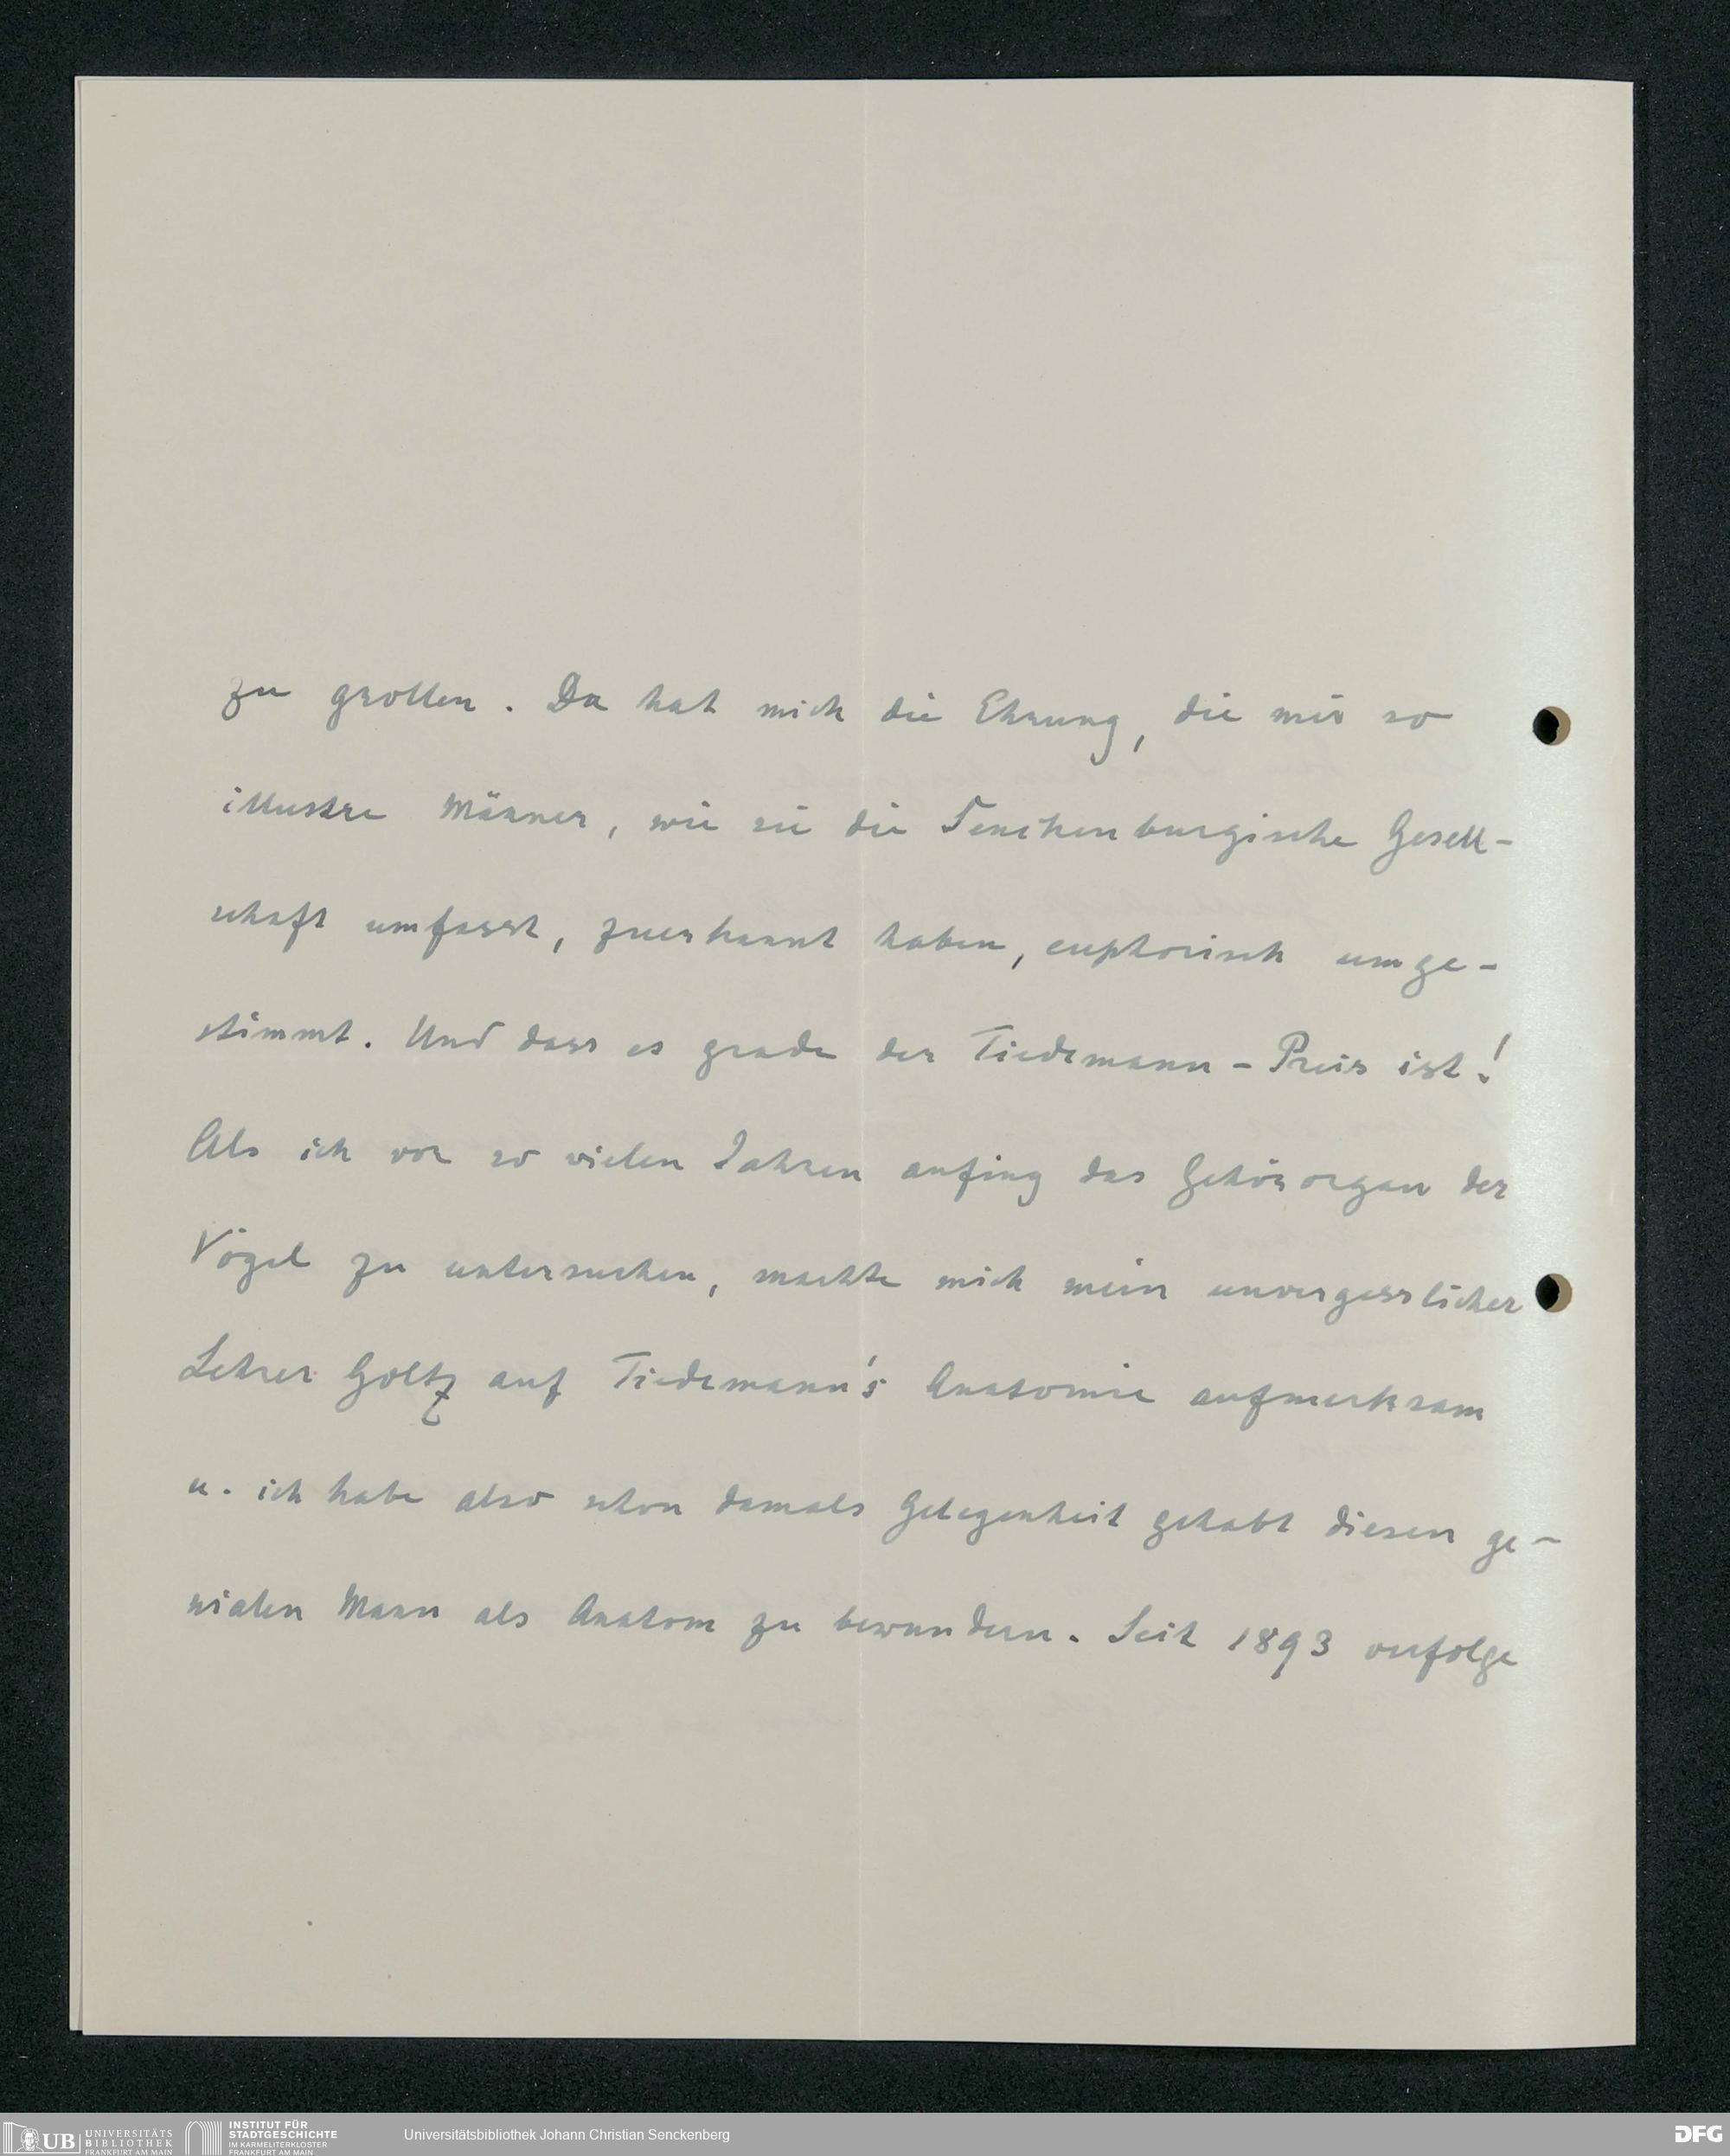 zu grollen. Da hat mich die Ehrung, die mir so
illustre Männer, wie sie die Senckenburgische Gesell-
schaft umfasst, zuerkannt haben, euphorisch umge-
stimmt. Und dass es grade der Tiedemann-Preis ist!
Als ich vor so vielen Jahren anfing das Gehörorgan der
Vögel zu untersuchen, machte mich mein unvergesslicher
Lehrer Goltz auf Tiedemann's Anatomie aufmerksam
u. ich habe also schon damals Gelegenheit gehabt diesen ge-
nialen Mann als Anatom zu bewundern. Seit 1893 verfolge
UB UNIVERSITÄTS
BIBLIOTHEK
FRANKFURT AM MAIN
INSTITUT FÜR
STADTGESCHICHTE
IM KARMELITERKLOSTER
FRANKFURT AM MAIN
Universitätsbibliothek Johann Christian Senckenberg
DFG